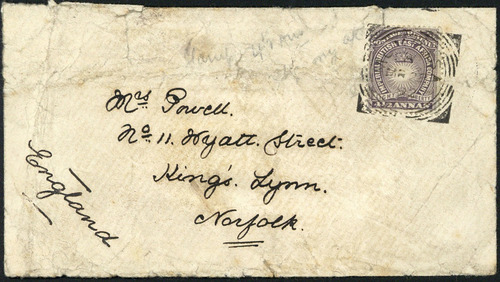 IMPERIAL BRITISH EAST AFRICA COMPANY
ANNAS
Mrs Powell.
No. 11. Wyatt. Street.
King's. Lynn.
Norfolk.
England